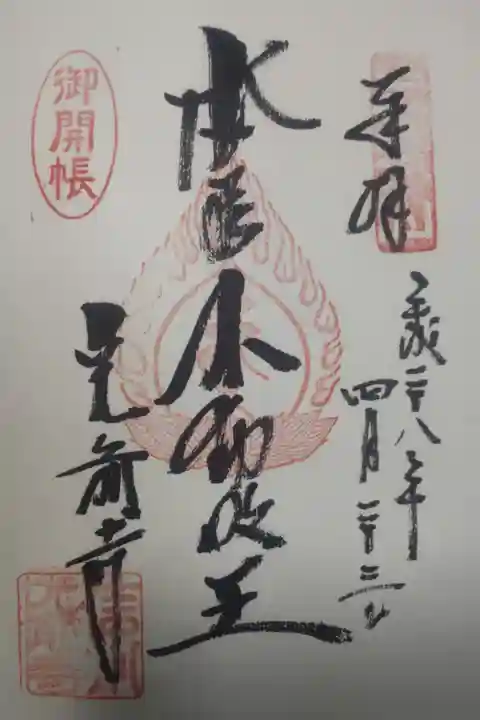 奉拝
平成二十八年
四月二十三日
本尊不動明王
光前寺
御開帳